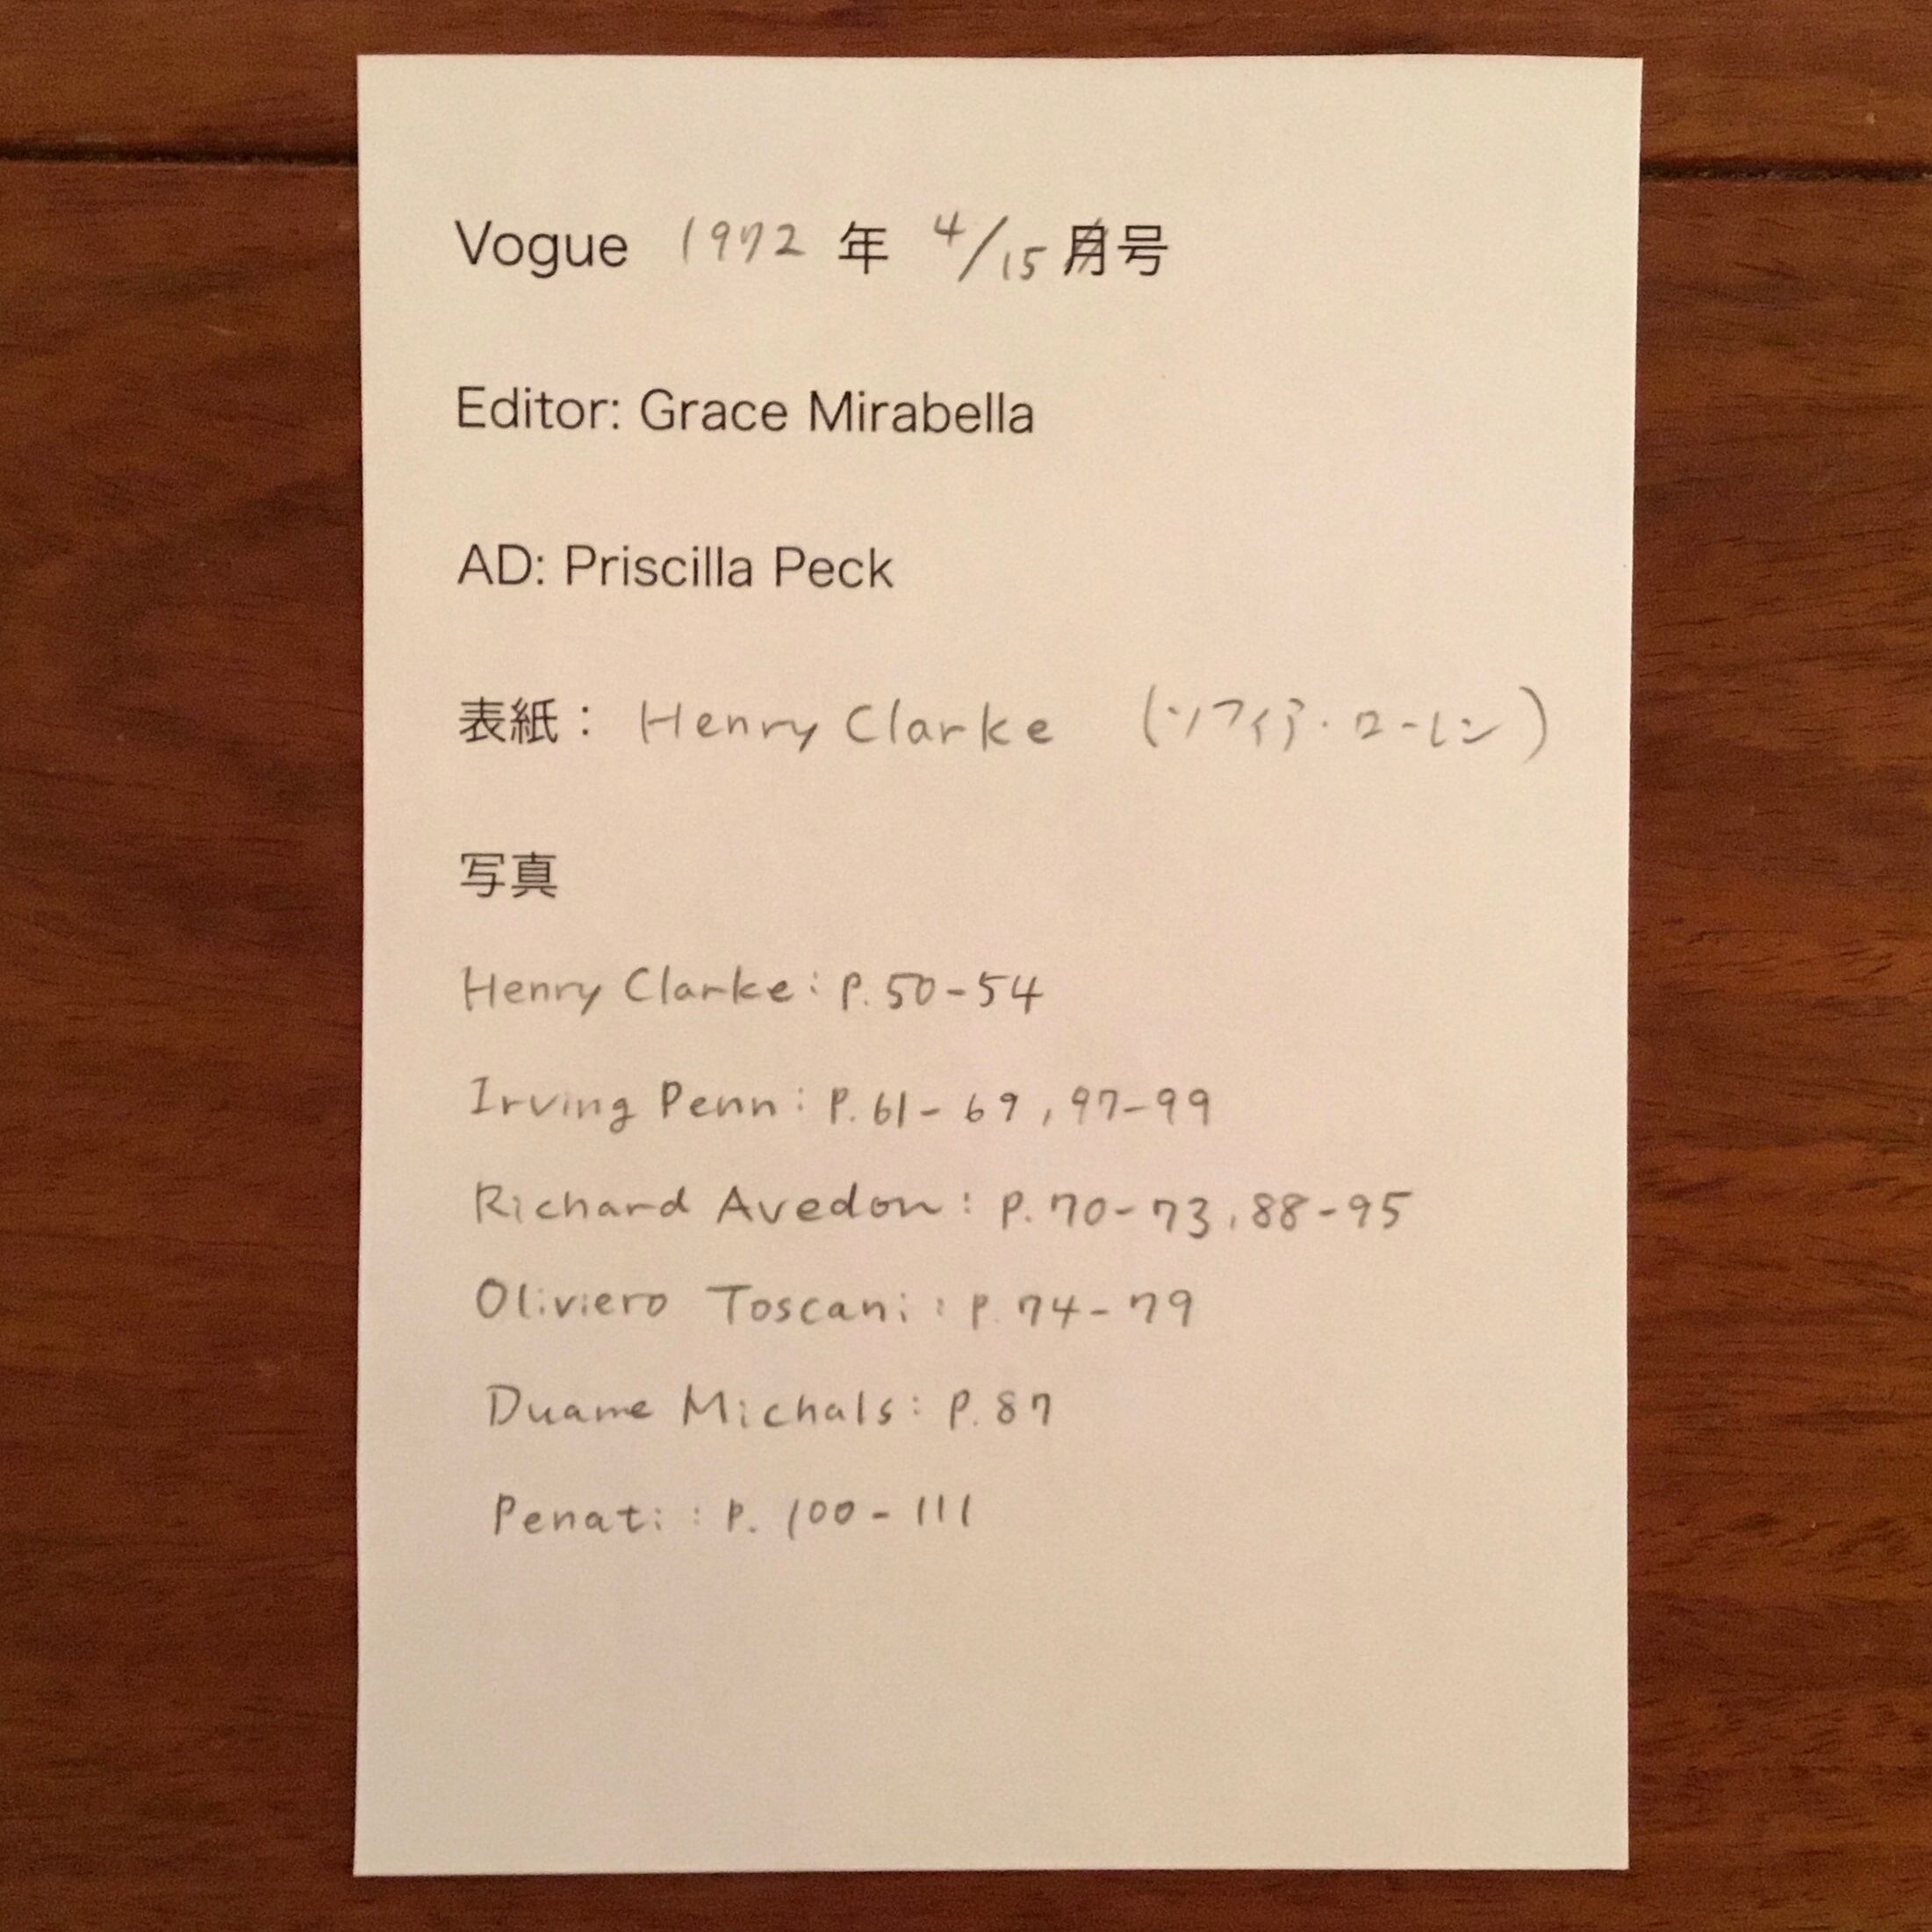 Vogue 1972 年 4/15 号
Editor: Grace Mirabella
AD: Priscilla Peck
表紙： Henry Clarke （ソフィア・ローレン）
写真
Henry Clarke: P. 50-54
Irving Penn: P. 61-69, 97-99
Richard Avedon: P. 70-73, 88-95
Oliviero Toscani: P. 74-79
Duame Michals: P. 87
Penati: P. 100-111